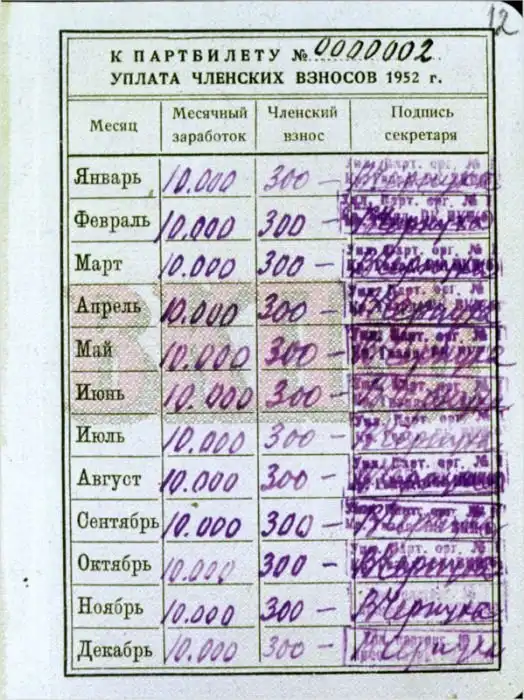 12
К ПАРТБИЛЕТУ № 0000002
УПЛАТА ЧЛЕНСКИХ ВЗНОСОВ 1952 г.
Месяц Месячный заработок Членский взнос Подпись секретаря
Январь 10.000 300 —
Февраль 10.000 300 —
Март 10.000 300 —
Апрель 10.000 300 —
Май 10.000 300 —
Июнь 10.000 300 —
Июль 10.000 300 —
Август 10.000 300 —
Сентябрь 10.000 300 —
Октябрь 10.000 300 —
Ноябрь 10.000 300 —
Декабрь 10.000 300 —